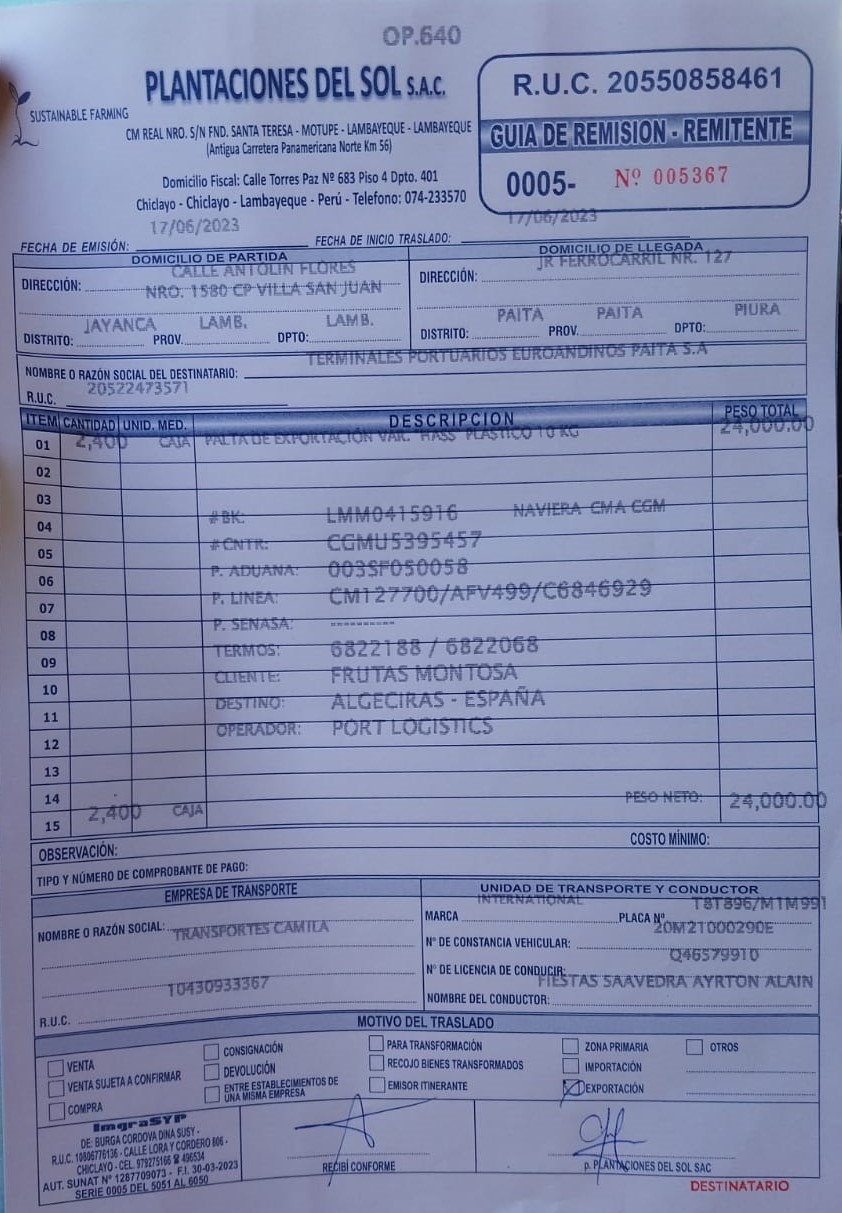 OP.640
PLANTACIONES DEL SOL S.A.C.
SUSTAINABLE FARMING
CM REAL NRO. S/N FND. SANTA TERESA - MOTUPE - LAMBAYEQUE - LAMBAYEQUE
(Antigua Carretera Panamericana Norte Km 56)
Domicilio Fiscal: Calle Torres Paz Nº 683 Piso 4 Dpto. 401
Chiclayo - Chiclayo - Lambayeque - Perú - Telefono: 074-233570
R.U.C. 20550858461
GUIA DE REMISION - REMITENTE
0005- Nº 005367
FECHA DE EMISIÓN: 17/06/2023 FECHA DE INICIO TRASLADO: 17/06/2023
DOMICILIO DE PARTIDA
DIRECCIÓN: CALLE ANTOLIN FLORES
NRO. 1580 CP VILLA SAN JUAN
DISTRITO: JAYANCA PROV. LAMB. DPTO: LAMB.
DOMICILIO DE LLEGADA
DIRECCIÓN: JR FERROCARRIL NR. 127
DISTRITO: PAITA PROV. PAITA DPTO: PIURA
NOMBRE O RAZÓN SOCIAL DEL DESTINATARIO: TERMINALES PORTUARIOS EUROANDINOS PAITA S.A
R.U.C. 20522473571
ITEM CANTIDAD UNID. MED. DESCRIPCION PESO TOTAL
01 2,400 CAJA PALTA DE EXPORTACIÓN VAR. HASS PLASTICO 10 KG 24,000.00
02
03
04 #BK: LMM0415916 NAVIERA CMA CGM
05 #CNTR: CGMU5395457
06 P. ADUANA: 003SF050058
07 P. LINEA: CM127700/AFV499/C6846929
08 P. SENASA: ----------
09 TERMOS: 6822188 / 6822068
10 CLIENTE: FRUTAS MONTOSA
11 DESTINO: ALGECIRAS - ESPAÑA
12 OPERADOR: PORT LOGISTICS
13
14
15 2,400 CAJA PESO NETO: 24,000.00
OBSERVACIÓN: COSTO MÍNIMO:
TIPO Y NÚMERO DE COMPROBANTE DE PAGO:
EMPRESA DE TRANSPORTE
NOMBRE O RAZÓN SOCIAL: TRANSPORTES CAMILA
R.U.C. 10430933367
UNIDAD DE TRANSPORTE Y CONDUCTOR
MARCA INTERNATIONAL PLACA Nº T8T896/M1M991
Nº DE CONSTANCIA VEHICULAR: 20M21000290E
Nº DE LICENCIA DE CONDUCIR: Q46579910
NOMBRE DEL CONDUCTOR: FIESTAS SAAVEDRA AYRTON ALAIN
MOTIVO DEL TRASLADO
VENTA
VENTA SUJETA A CONFIRMAR
COMPRA
CONSIGNACIÓN
DEVOLUCIÓN
ENTRE ESTABLECIMIENTOS DE
UNA MISMA EMPRESA
PARA TRANSFORMACIÓN
RECOJO BIENES TRANSFORMADOS
EMISOR ITINERANTE
ZONA PRIMARIA
IMPORTACIÓN
EXPORTACIÓN
OTROS
ImgraSYP
DE: BURGA CORDOVA DINA SUSY -
R.U.C. 10806776136 - CALLE LORA Y CORDERO 806 -
CHICLAYO - CEL. 979275166 ☎ 496534
AUT. SUNAT Nº 1287709073 - F.I. 30-03-2023
SERIE 0005 DEL 5051 AL 6050
RECIBÍ CONFORME
p. PLANTACIONES DEL SOL SAC
DESTINATARIO